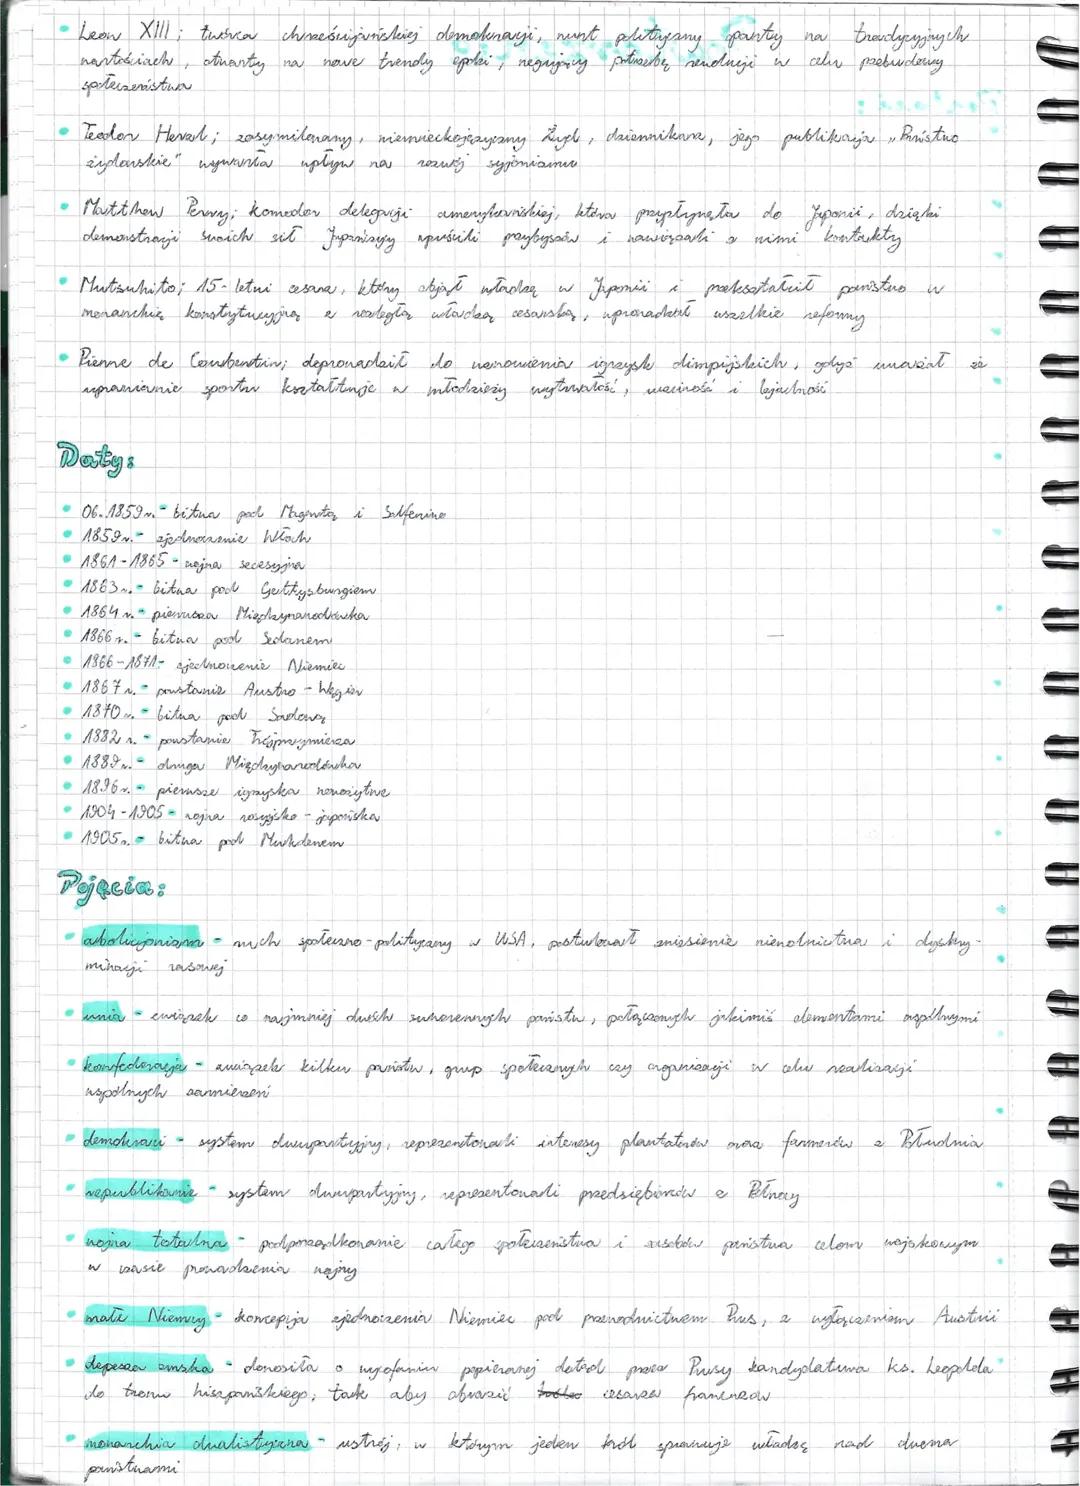 • Leon XIII; twórca chrześcijańskiej demokracji, nurt polityczny oparty na tradycyjnych
wartościach, otwarty na nowe trendy epoki, negujący potrzebę rewolucji w celu przebudowy
społeczeństwa
• Teodor Herzl; zasymilowany, niemieckojęzyczny Żyd, dziennikarz, jego publikacja „Państwo
żydowskie" wywarła wpływ na rozwój syjonizmu
• Matthew Perry; komodor delegacji amerykańskiej, która przypłynęła do Japonii, dzięki
demonstracji swoich sił Japończycy wpuścili przybyszów i nawiązali z nimi kontakty
• Mutsuhito; 15-letni cesarz, który objął władzę w Japonii i przekształcił państwo w
monarchię konstytucyjną z rozległą władzą cesarską, wprowadził wszelkie reformy
• Pierre de Coubertin; doprowadził do wznowienia igrzysk olimpijskich, gdyż uważał że
uprawianie sportu kształtuje w młodzieży wytrwałość, uczciwość i lojalność
Daty:
• 06.1859r. - bitwa pod Magentą i Solferino
• 1859r. - zjednoczenie Włoch
• 1861-1865 - wojna secesyjna
• 1863r. - bitwa pod Gettysburgiem
• 1864r. - pierwsza Międzynarodówka
• 1866r. - bitwa pod Sedanem
• 1866-1871 - zjednoczenie Niemiec
• 1867r. - powstanie Austro-Węgier
• 1870r. - bitwa pod Sadową
• 1882r. - powstanie Trójprzymierza
• 1889r. - druga Międzynarodówka
• 1896r. - pierwsze igrzyska nowożytne
• 1904-1905 - wojna rosyjsko-japońska
• 1905r. - bitwa pod Mukdenem
Pojęcia:
• abolicjonizm - ruch społeczno-polityczny w USA, postulował zniesienie niewolnictwa i dyskry-
minacji rasowej
• unia - związek co najmniej dwóch suwerennych państw, połączonych jakimiś elementami wspólnymi
• konfederacja - związek kilku państw, grup społecznych czy organizacji w celu realizacji
wspólnych zamierzeń
• demokraci - system dwupartyjny, reprezentowali interesy plantatorów oraz farmerów z Południa
• republikanie - system dwupartyjny, reprezentowali przedsiębiorców z Północy
• wojna totalna - podporządkowanie całego społeczeństwa i zasobów państwa celom wojskowym
w czasie prowadzenia wojny
• małe Niemcy - koncepcja zjednoczenia Niemiec pod przewodnictwem Prus, z wyłączeniem Austrii
• depesza emska - donosiła o wycofaniu popieranej dotąd przez Prusy kandydatura ks. Leopolda
do tronu hiszpańskiego; tak aby obrazić cesarza francuzów
• monarchia dualistyczna - ustrój, w którym jeden król sprawuje władzę nad dwoma
państwami